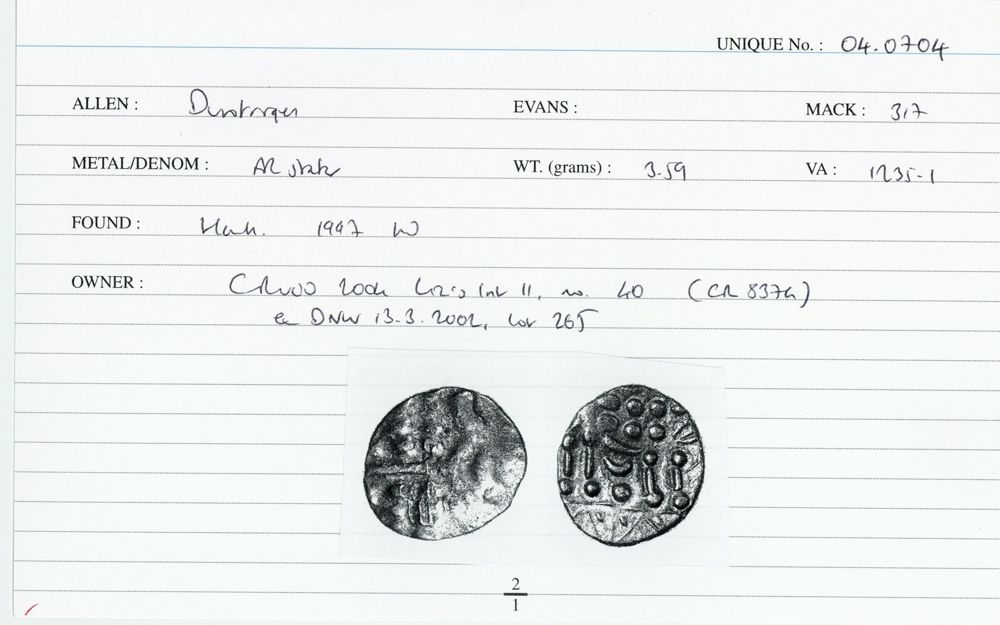 UNIQUE No. : 04.0704
ALLEN : Durotriges EVANS : MACK : 317
METAL/DENOM : AR stater WT. (grams) : 3.59 VA : 1235-1
FOUND : 1997
OWNER : 2004 List 11, no. 40 (CR 837a)
ex DNW 13.3.2002, lot 265
2
1